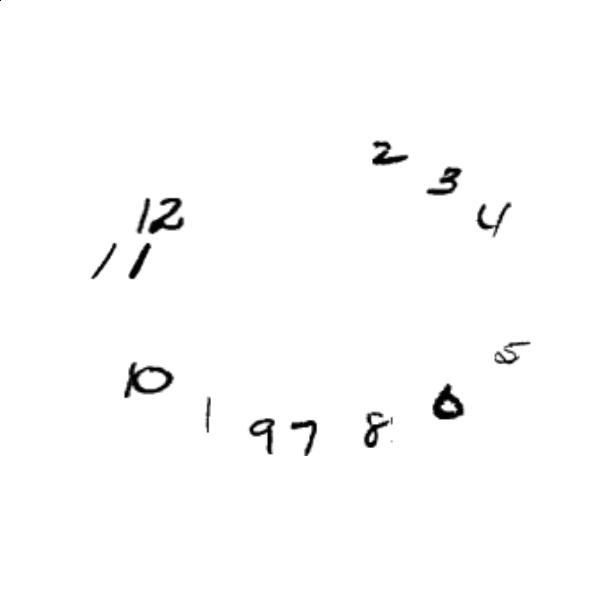 2
3
12
4
11
5
10
6
1
9 7 8